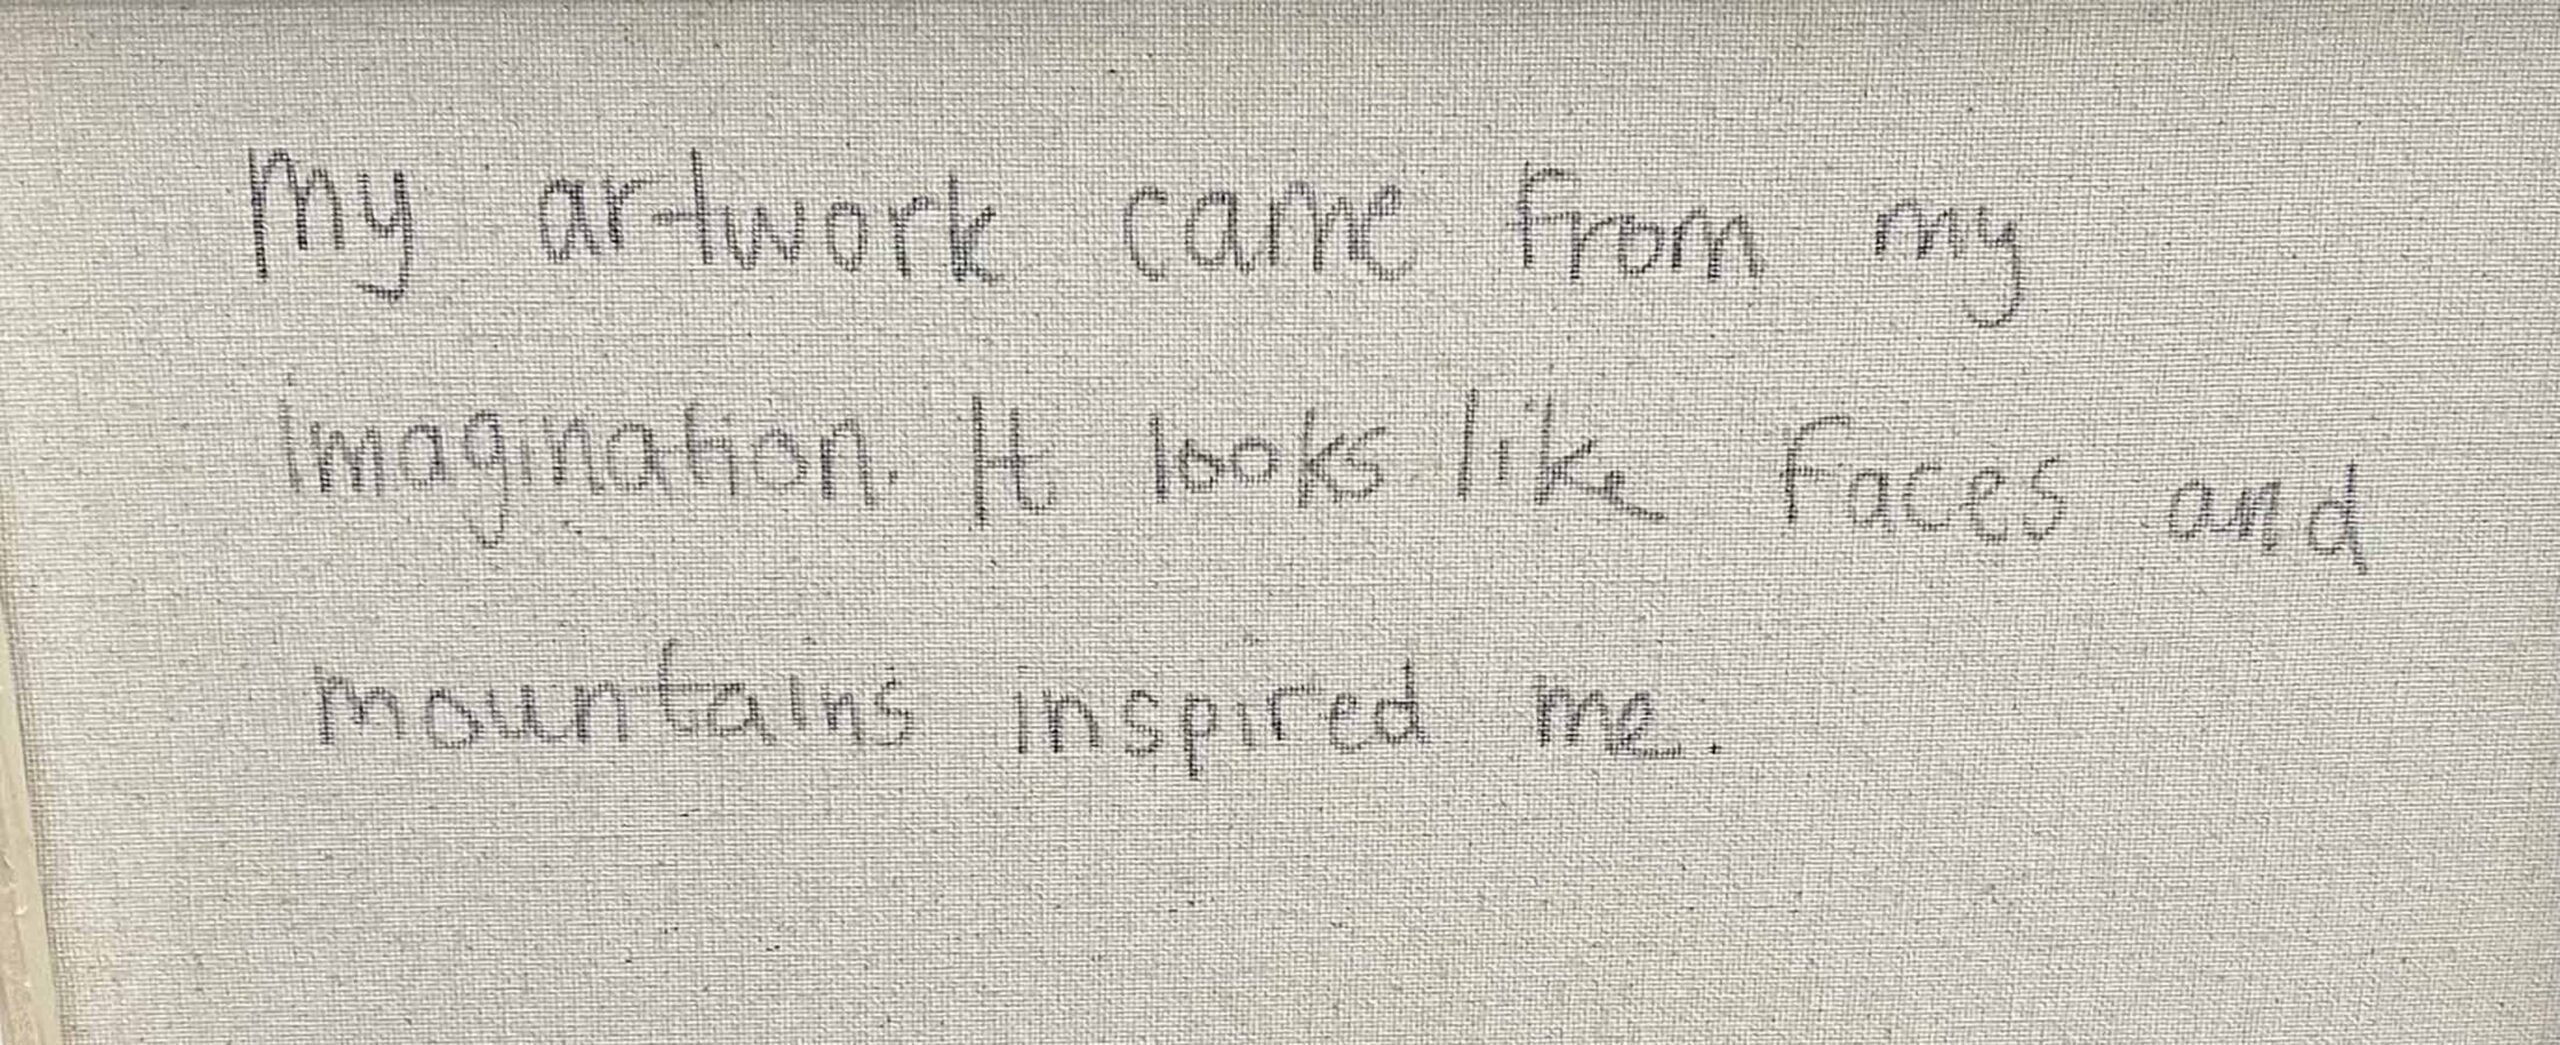 My artwork came from my
imagination. It looks like faces and
mountains inspired me.